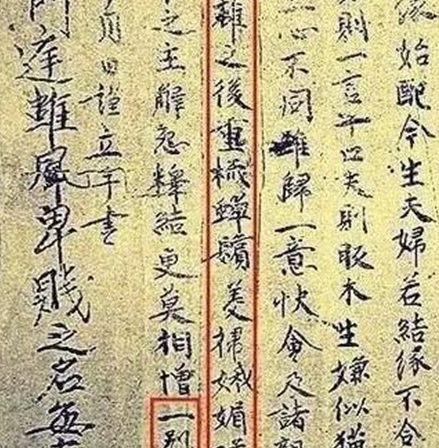 始配今生夫婦若結缘不合
則一言十口夫則木生嫌似猫
心不同難歸一意快會及諸親
離之後重梳蟬鬢美掃娥媚
之主解怨釋結更莫相憎一別
月日謹立字書
門雖風卑賤之名無